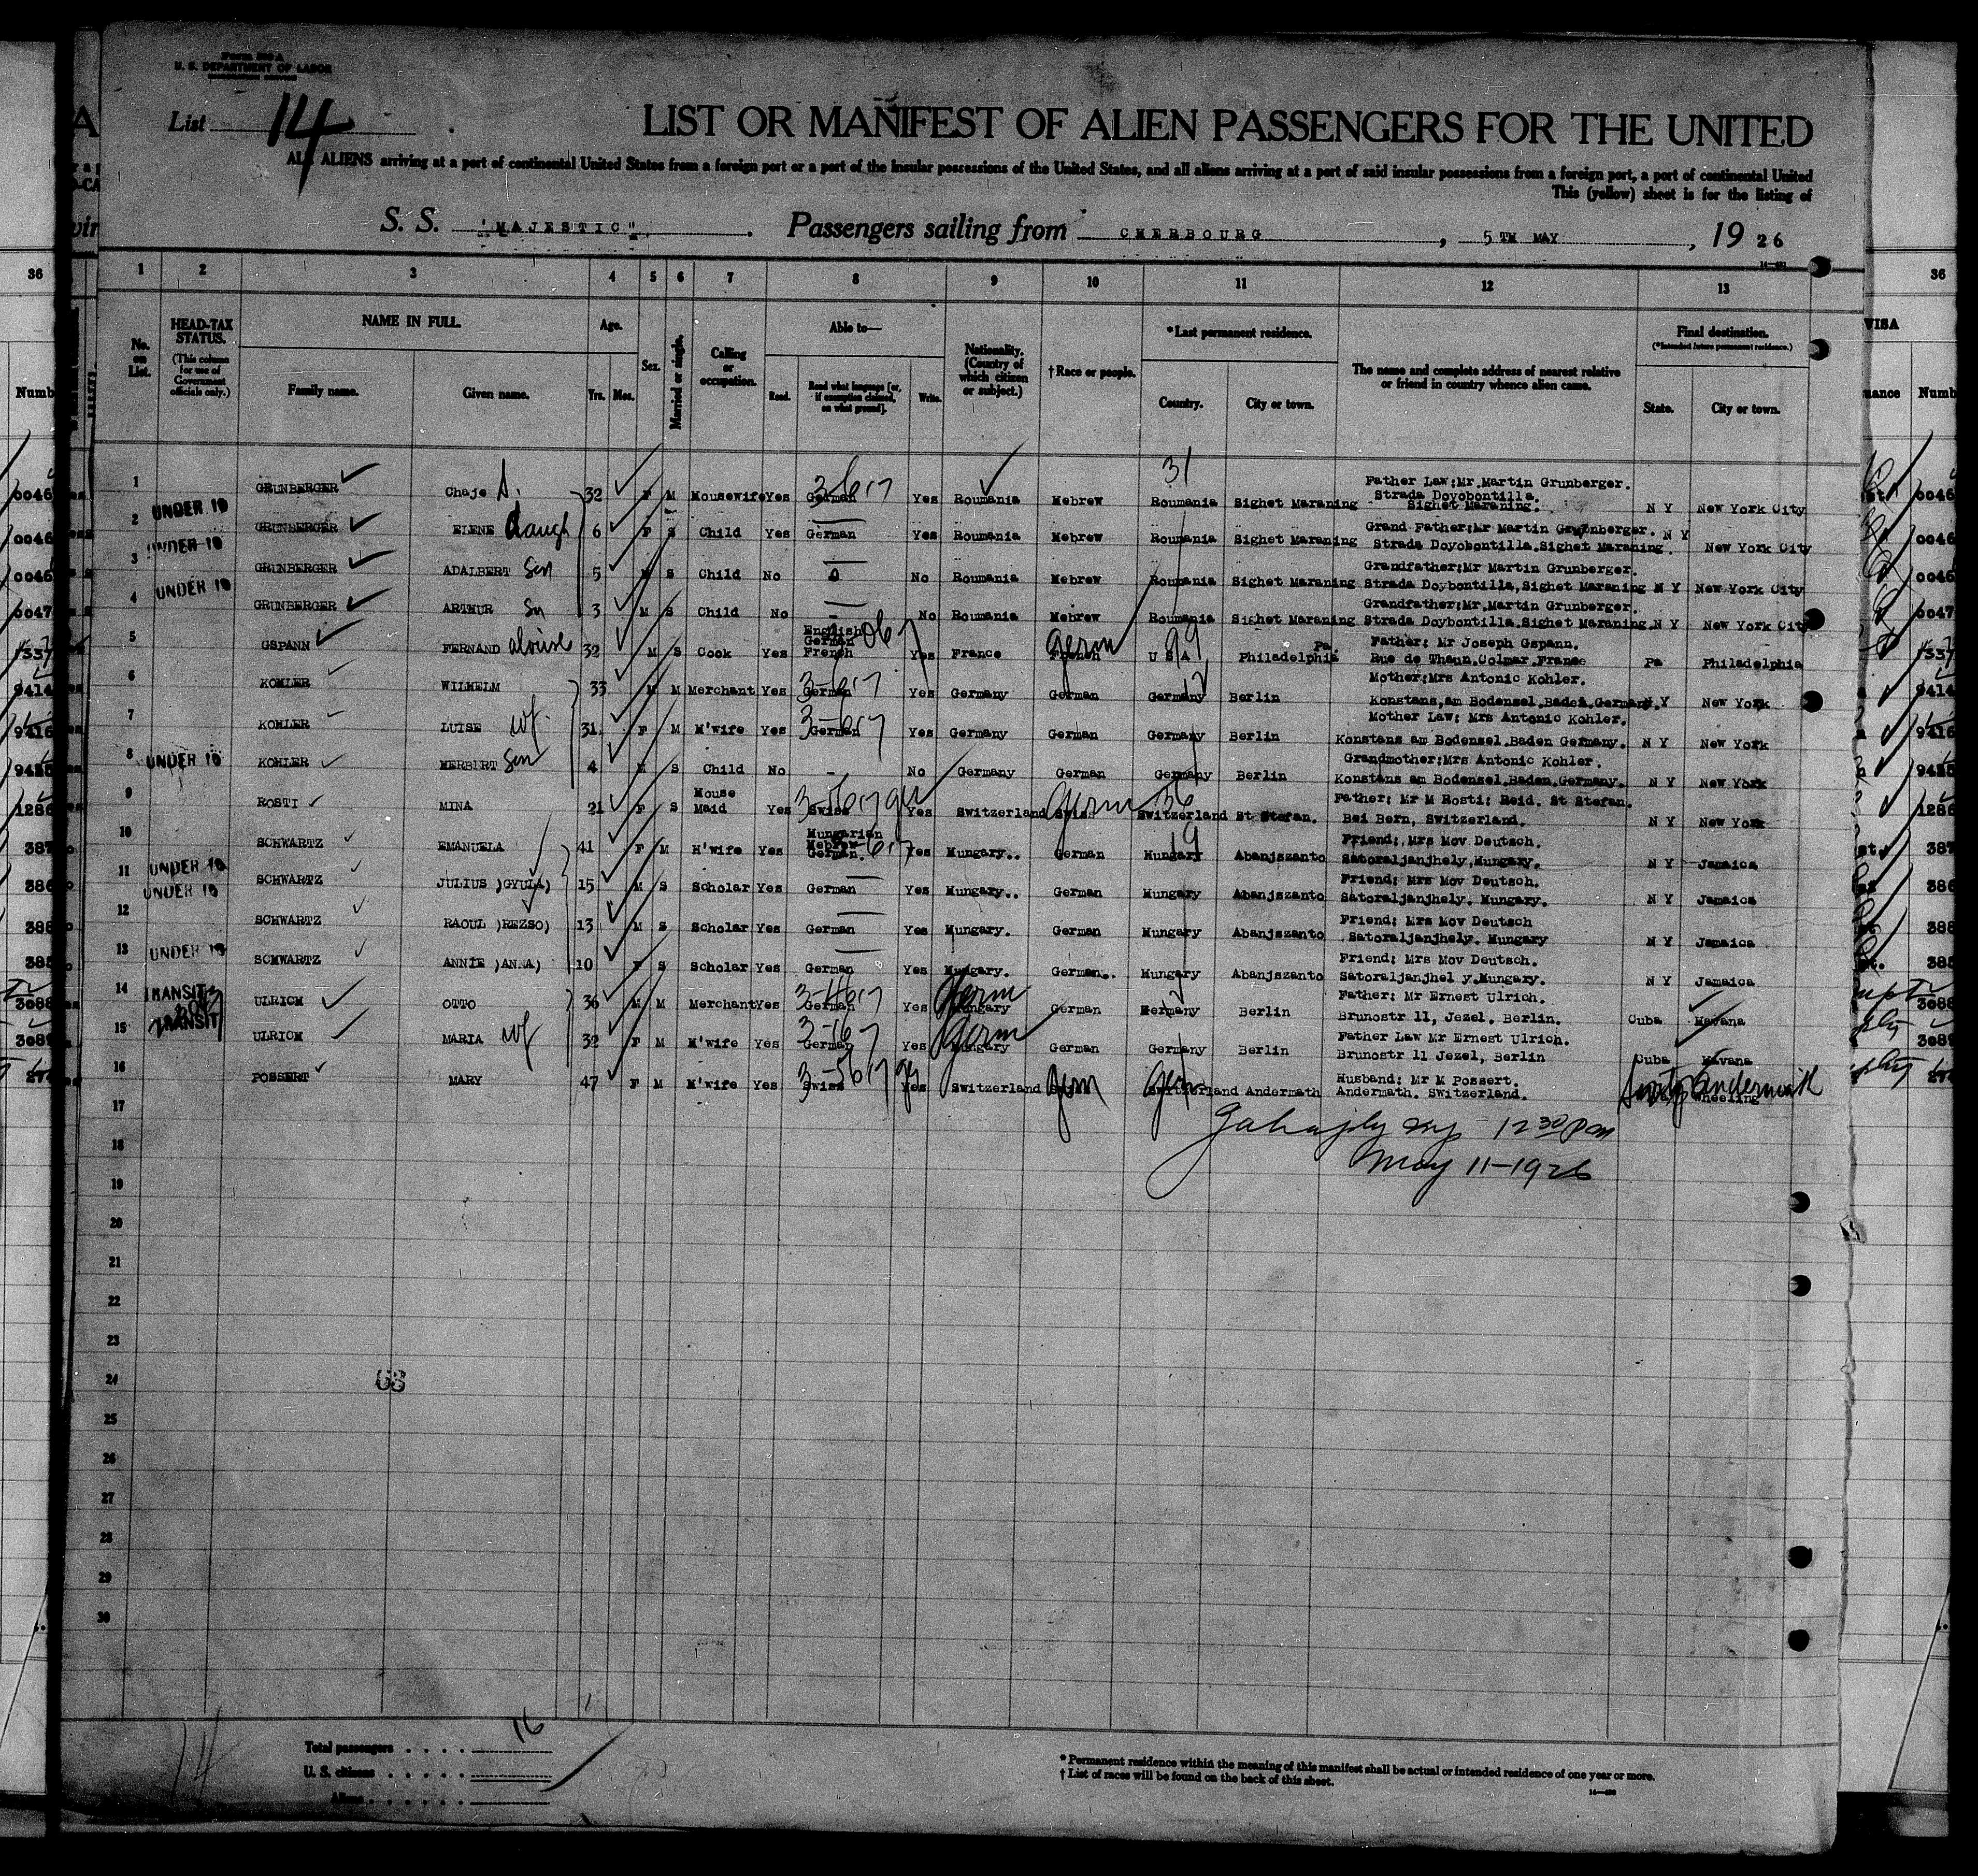 Form 500 A
U. S. DEPARTMENT OF LABOR
IMMIGRATION SERVICE
List 14
LIST OR MANIFEST OF ALIEN PASSENGERS FOR THE UNITED
ALL ALIENS arriving at a port of continental United States from a foreign port or a port of the insular possessions of the United States, and all aliens arriving at a port of said insular possessions from a foreign port, a port of continental United
This (yellow) sheet is for the listing of
S. S. "MAJESTIC". Passengers sailing from CHERBOURG, 5TH MAY, 1926
1 2 3 4 5 6 7 8 9 10 11 12 13
No. on List.
HEAD-TAX STATUS. (This column for use of Government officials only.)
NAME IN FULL.
Family name. Given name.
Age. Yrs. Mos.
Sex.
Married or single.
Calling or occupation.
Able to—
Read. Read what language [or, if exemption claimed, on what ground]. Write.
Nationality. (Country of which citizen or subject.)
†Race or people.
*Last permanent residence.
Country. City or town.
The name and complete address of nearest relative or friend in country whence alien came.
Final destination. (*Intended future permanent residence.)
State. City or town.
31
1 GRUNBERGER Chaje S. 32 F M Housewife Yes German Yes Roumania Hebrew Roumania Sighet Maraning Father Law;Mr.Martin Grunberger. Strada Doyobontilla. Sighet Maraning. N Y New York City
2 UNDER 16 GRUNBERGER ELENE daugh 6 F S Child Yes German Yes Roumania Hebrew Roumania Sighet Maraning Grand Father;Mr Martin Grunberger. Strada Doyobontilla.Sighet Maraning. N Y New York City
3 UNDER 16 GRUNBERGER ADALBERT Son 5 M S Child No No Roumania Hebrew Roumania Sighet Maraning Grandfather;Mr Martin Grunberger. Strada Doybontilla,Sighet Maraning N Y New York City
4 UNDER 16 GRUNBERGER ARTHUR Sn 3 M S Child No - No Roumania Hebrew Roumania Sighet Maraning Grandfather;Mr.Martin Grunberger. Strada Doybontilla.Sighet Maraning. N Y New York City
5 GSPANN FERNAND aloise 32 M S Cook Yes English German French Yes France French germ U S A Philadelphia Pa. Father; Mr Joseph Gspann. Rue de Thaun.Colmar.France Pa Philadelphia
6 KOHLER WILHELM 33 M M Merchant Yes German Yes Germany German Germany Berlin Mother;Mrs Antonic Kohler. Konstans,am Bodensel.Baden.Germany. N.Y New York
7 KOHLER LUISE wf. 31. F M H'wife Yes German Yes Germany German Germany Berlin Mother Law; Mrs Antonic Kohler. Konstans am Bodensel.Baden Germany. N Y New York
8 UNDER 16 KOHLER HERBIRT Son 4 M S Child No - No Germany German Germany Berlin Grandmother;Mrs Antonic Kohler. Konstans am Bodensel.Baden.Germany. N Y New York
9 ROSTI MINA 21 F S House Maid Yes Swiss Yes Switzerland Swiss germ Switzerland 36 St Stefan. Father; Mr M Rosti; Reid. St Stefan. Bei Bern, Switzerland. N Y New York
10 SCHWARTZ EMANUELA 41 F M H'wife Yes Hungarian Hebrew German. Yes Hungary.. German Hungary 19 Abanjszanto Friend;,Mrs Mov Deutsch. Satoraljanjhely,Hungary. N Y Jamaica
11 UNDER 16 SCHWARTZ JULIUS )GYULA) 15 M S Scholar Yes German Yes Hungary.. German Hungary Abanjszanto Friend; Mrs Mov Deutsch. Satoraljanjhely. Hungary. N Y Jamaica
12 UNDER 16 SCHWARTZ RAOUL )REZSO) 13 M S Scholar Yes German Yes Hungary. German Hungary Abanjszanto Friend; Mrs Mov Deutsch Satoraljanjhely. Hungary N Y Jamaica
13 UNDER 16 SCHWARTZ ANNIE )ANNA) 10 F S Scholar Yes German Yes Hungary. German.. Hungary Abanjszanto Friend; Mrs Mov Deutsch. Satoraljanjhel y.Hungary. N Y Jamaica
14 TRANSIT ULRICH OTTO 36 M M Merchant Yes German Yes Hungary Germ German Germany Berlin Father; Mr Ernest Ulrich. Brunostr 11, Jezel. Berlin. Cuba Havana
15 TRANSIT ULRICH MARIA wf 32 F M H'wife Yes German Yes Hungary Germ German Germany Berlin Father Law Mr Ernest Ulrich. Brunostr 11 Jezel, Berlin Cuba Havana
16 POSSERT MARY 47 F M H'wife Yes Swiss Yes Switzerland germ Switzerland Andermath Husband; Mr M Possert. Andermath. Switzerland. Switz Andermath Wheeling
17
12 30 pm
18
May 11-1926
19
20
21
22
23
24
63
25
26
27
28
29
30
14
Total passengers 16
U. S. citizens
Aliens
* Permanent residence within the meaning of this manifest shall be actual or intended residence of one year or more.
† List of races will be found on the back of this sheet.